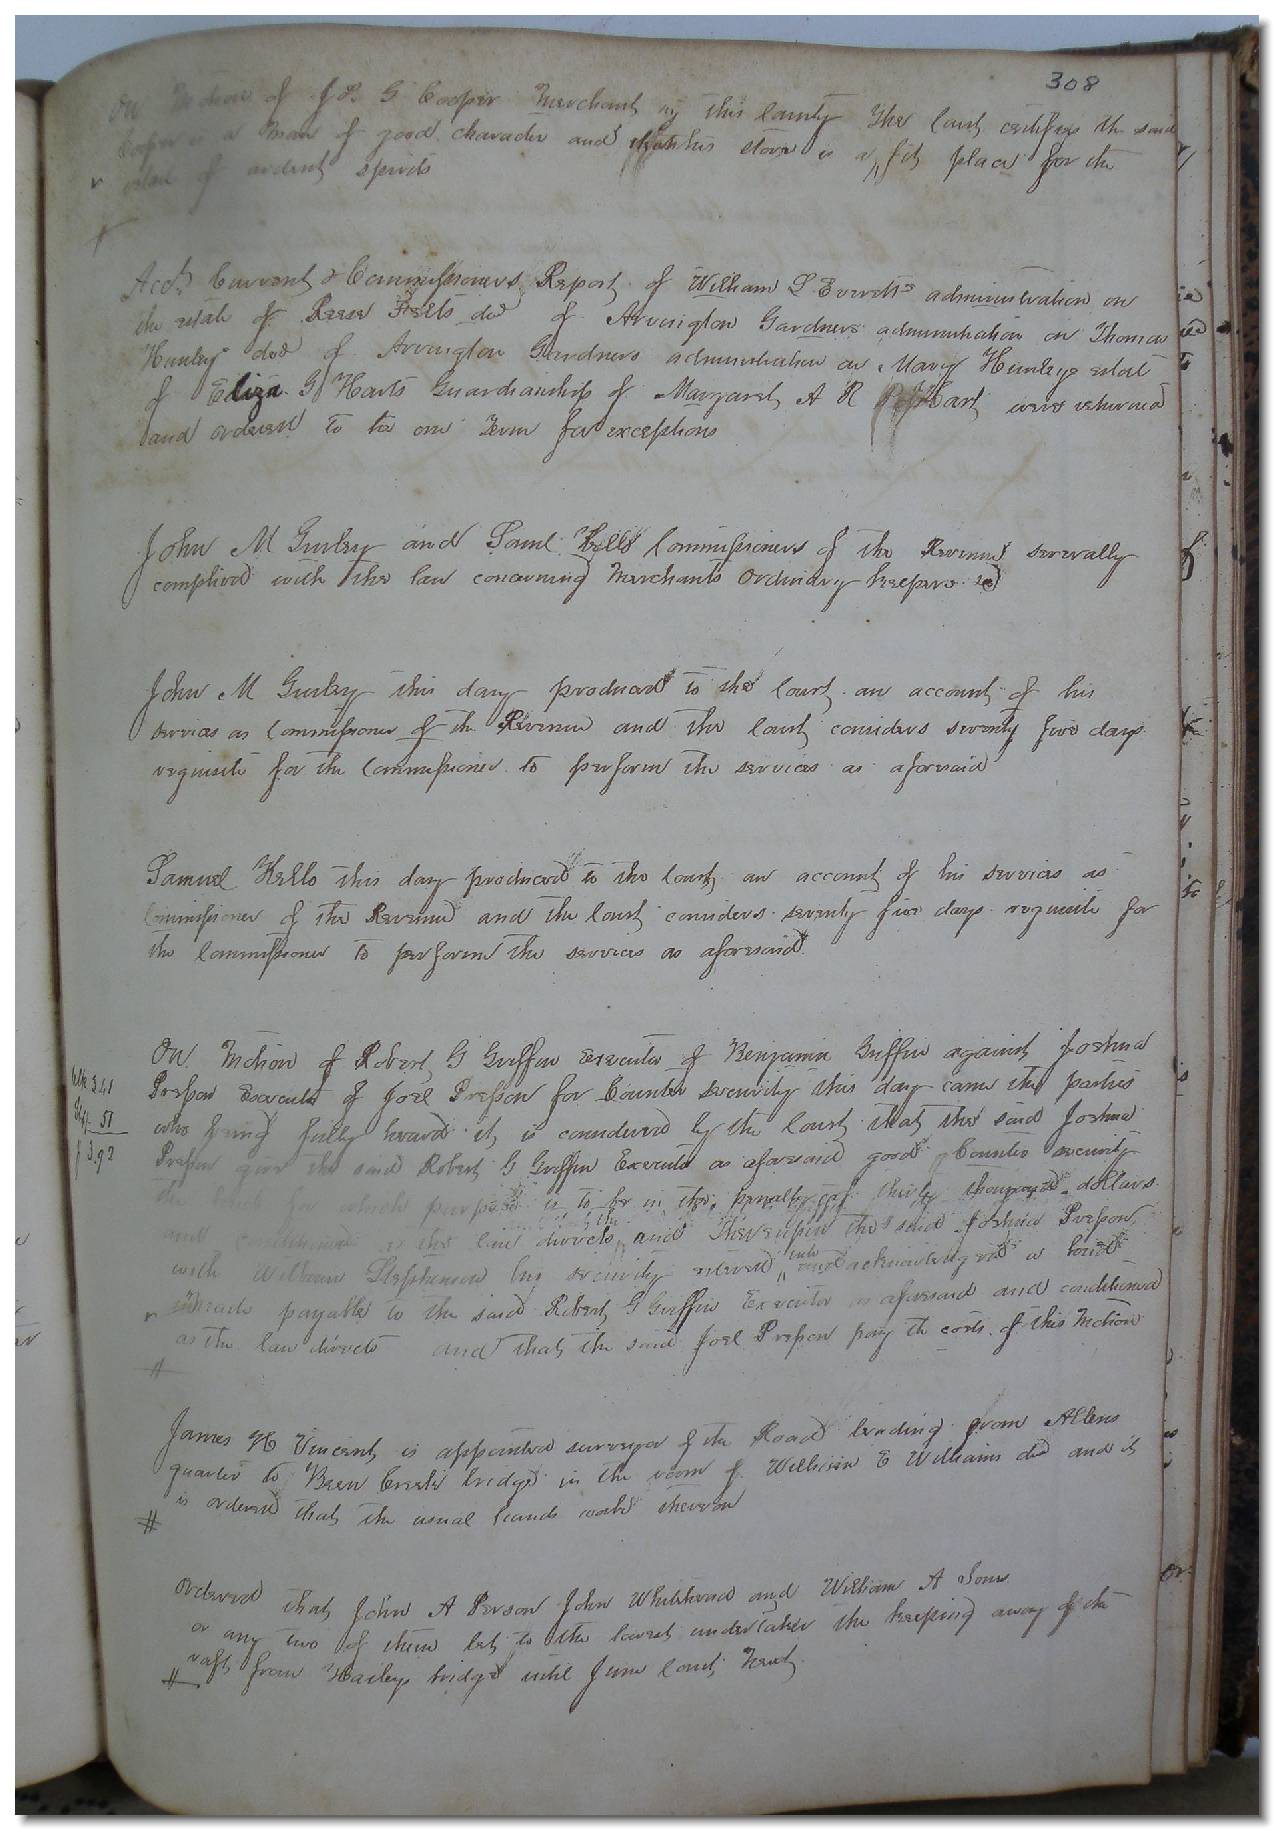 308
On Motion of J P G Cooper Merchant in this County The Court certifies the said
Cooper is a man of good character and that his store is a fit place for the
retail of ardent spirits
Acct Current & Commissioners Report of William L Everetts administration on
the estate of Reese Felts decd of Arrington Gardners administration on Thomas
Hunleys decd of Arrington Gardners administration on Mary Hunleys estate
of Eliza G Harts Guardianship of Margaret A R Hart were returned
and ordered to lie one Term for exceptions
John M Gurley and Saml Kello Commissioners of the Revenue severally
complied with the law concerning Merchants Ordinary keepers &c
John M Gurley this day produced to the Court an account of his
services as Commissioner of the Revenue and the Court considers seventy five days
requisite for the Commissioner to perform the services as aforesaid
Samuel Kello this day produced to the Court an account of his services as
Commissioner of the Revenue and the Court considers seventy five days requisite for
the Commissioner to perform the services as aforesaid
On Motion of Robert G Griffin Executor of Benjamin Griffin against Joshua
Presson Executor of Joel Presson for Counter security this day came the parties
3.41
51
3.92
who being fully heard it is considered by the Court that the said Joshua
Presson give the said Robert G Griffin Executor as aforesaid good Counter security
the bond for which purpose is to be in the penalty of thirty thousand dollars
and conditioned as the law directs and Thereupon the said Joshua Presson
with William Stephenson his security entered into and acknowledged a bond
payable to the said Robert G Griffin Executor as aforesaid and conditioned
as the law directs and that the said Joel Presson pay the costs of this Motion
#
James H Vincent is appointed surveyor of the Road leading from Allens
quarter to Creek bridge in the room of William E Williams decd and it
is ordered that the usual hands work thereon
#
Ordered that John A Person John Whitehead and William A Sons
or any two of them let to the lowest undertaker the keeping away of the
raft from Haileys bridge until June Court Next
#